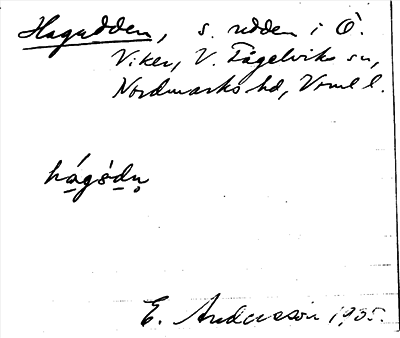 Hagudden, s. udden i Ö.
Viker, V. Fågelviks sn,
Nordmarks hd, Vrml l.
hág̀ǝ̀dn̥
E. Andersson 1935.